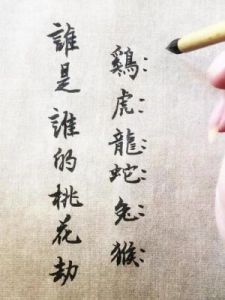 誰是誰的桃花劫
鷄：
虎：
龍：
蛇：
兔：
猴：